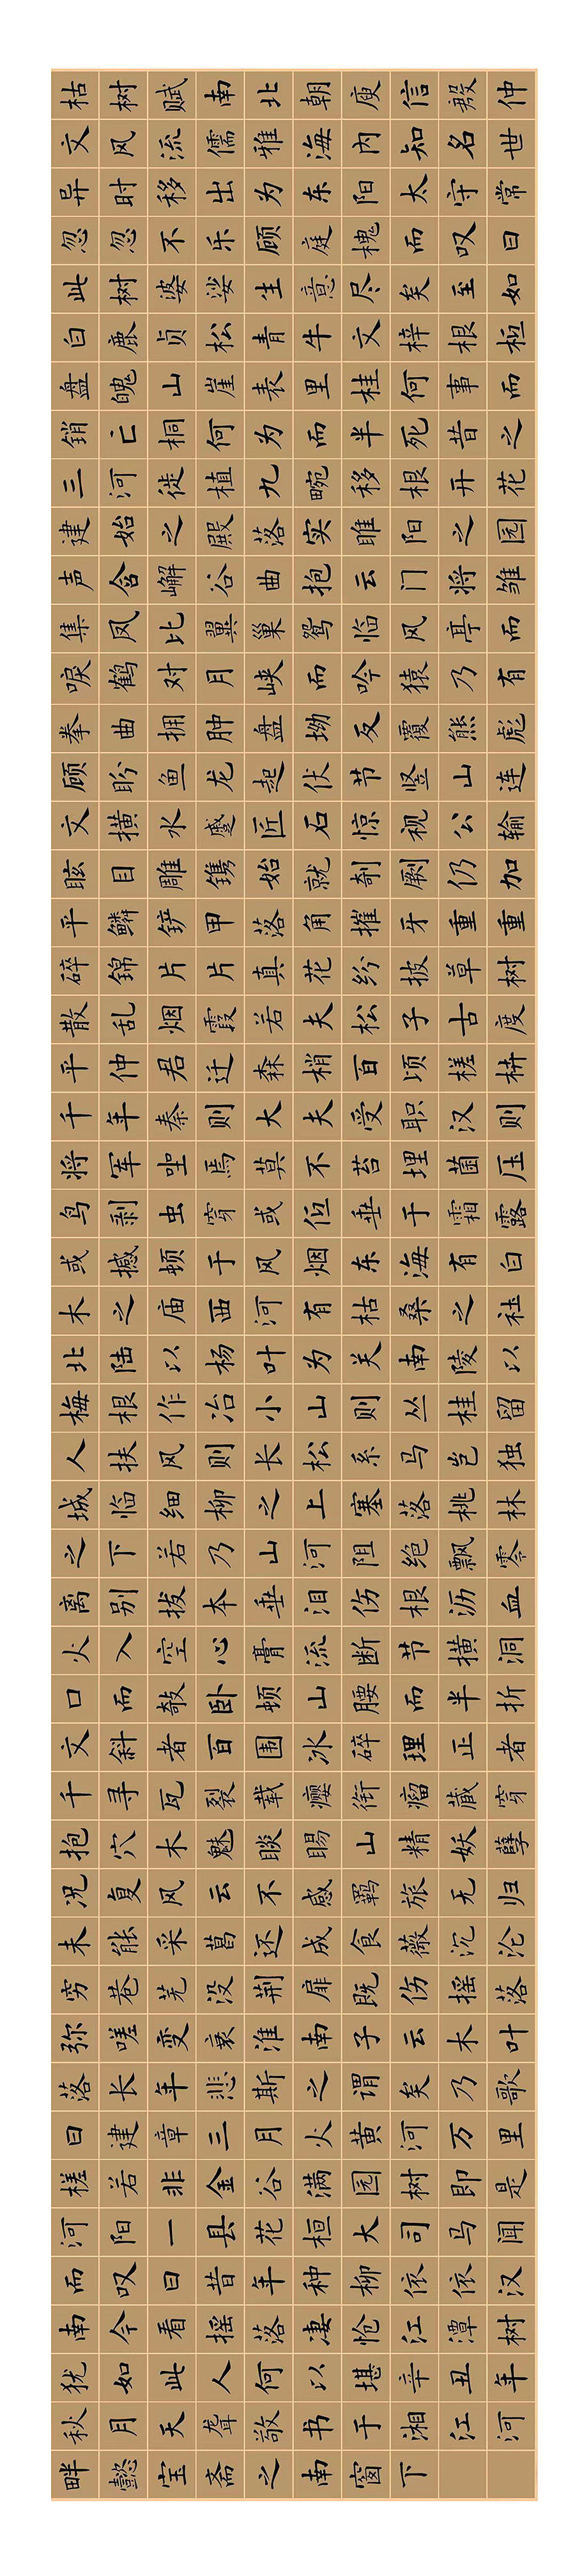 枯树赋南北朝庾信殷仲
文风流儒雅海内知名世
异时移出为东阳太守常
忽忽不乐顾庭槐而叹曰
此树婆娑生意尽矣至如
白鹿贞松青牛文梓根柢
盘魄山崖表里桂何事而
销亡桐何为而半死昔之
三河徙植九畹移根开花
建始之殿落实睢阳之园
声含嶰谷曲抱云门将雏
集凤比翼巢鸳临风亭而
唳鹤对月峡而吟猿乃有
拳曲拥肿盘坳反覆熊彪
顾盼鱼龙起伏节竖山连
文横水蹙匠石惊视公输
眩目雕镌始就剞劂仍加
平鳞铲甲落角摧牙重重
碎锦片片真花纷披草树
散乱烟霞若夫松子古度
平仲君迁森梢百顷槎枿
千年秦则大夫受职汉则
将军坐焉莫不苔埋菌压
鸟剥虫穿或低垂于霜露
或撼顿于风烟东海有白
木之庙西河有枯桑之社
北陆以杨叶为关南陵以
梅根作冶小山则丛桂留
人扶风则长松系马岂独
城临细柳之上塞落桃林
之下若乃山河阻绝飘零
离别拔本垂泪伤根沥血
火入空心膏流断节横洞
口而敧卧顿山腰而半折
文斜者百围冰碎理正者
千寻瓦裂载瘿衔瘤藏穿
抱穴木魅睒睗山精妖孽
况复风云不感羁旅无归
未能采葛还成食薇沉沦
穷巷芜没荆扉既伤摇落
弥嗟变衰淮南子云木叶
落长年悲斯之谓矣乃歌
曰建章三月火黄河万里
槎若非金谷满园树即是
河阳一县花桓大司马闻
而叹曰昔年种柳依依汉
南今看摇落凄怆江潭树
犹如此人何以堪辛丑年
秋月天聋敬书于湘江河
畔懿宝斋之南窗下